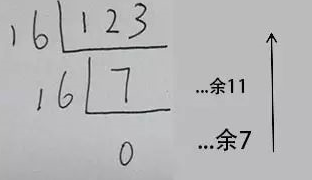 16 123
16 7 ...余11
0 ...余7